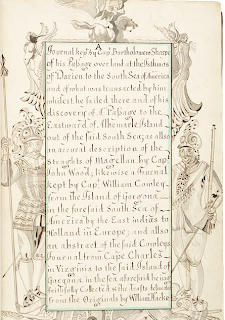 Journal kept by Cap. Bartholomew Sharpe
of his Passage over land at the Isthmus
of Darien to the South Sea of America
and of what was transacted by him
whilest he sailed there and of his
discovery of a Passage to the
Eastward of Albemarle Island
out of the said South Sea; as also
an accurat description of the
Streights of Magellan by Cap.
John Wood; likewise a Journal
kept by Cap. William Cowley
from the Island of Gorgona
in the foresaid South Sea of
America by the East indias to
Holland in Europe; and also
an abstract of the said Cowleys
Journal from Cape Charles
in Virginia to the said Island of
Gorgona in the sea aforesaid being
faithfully Collected &
from the Originals by William Hacke